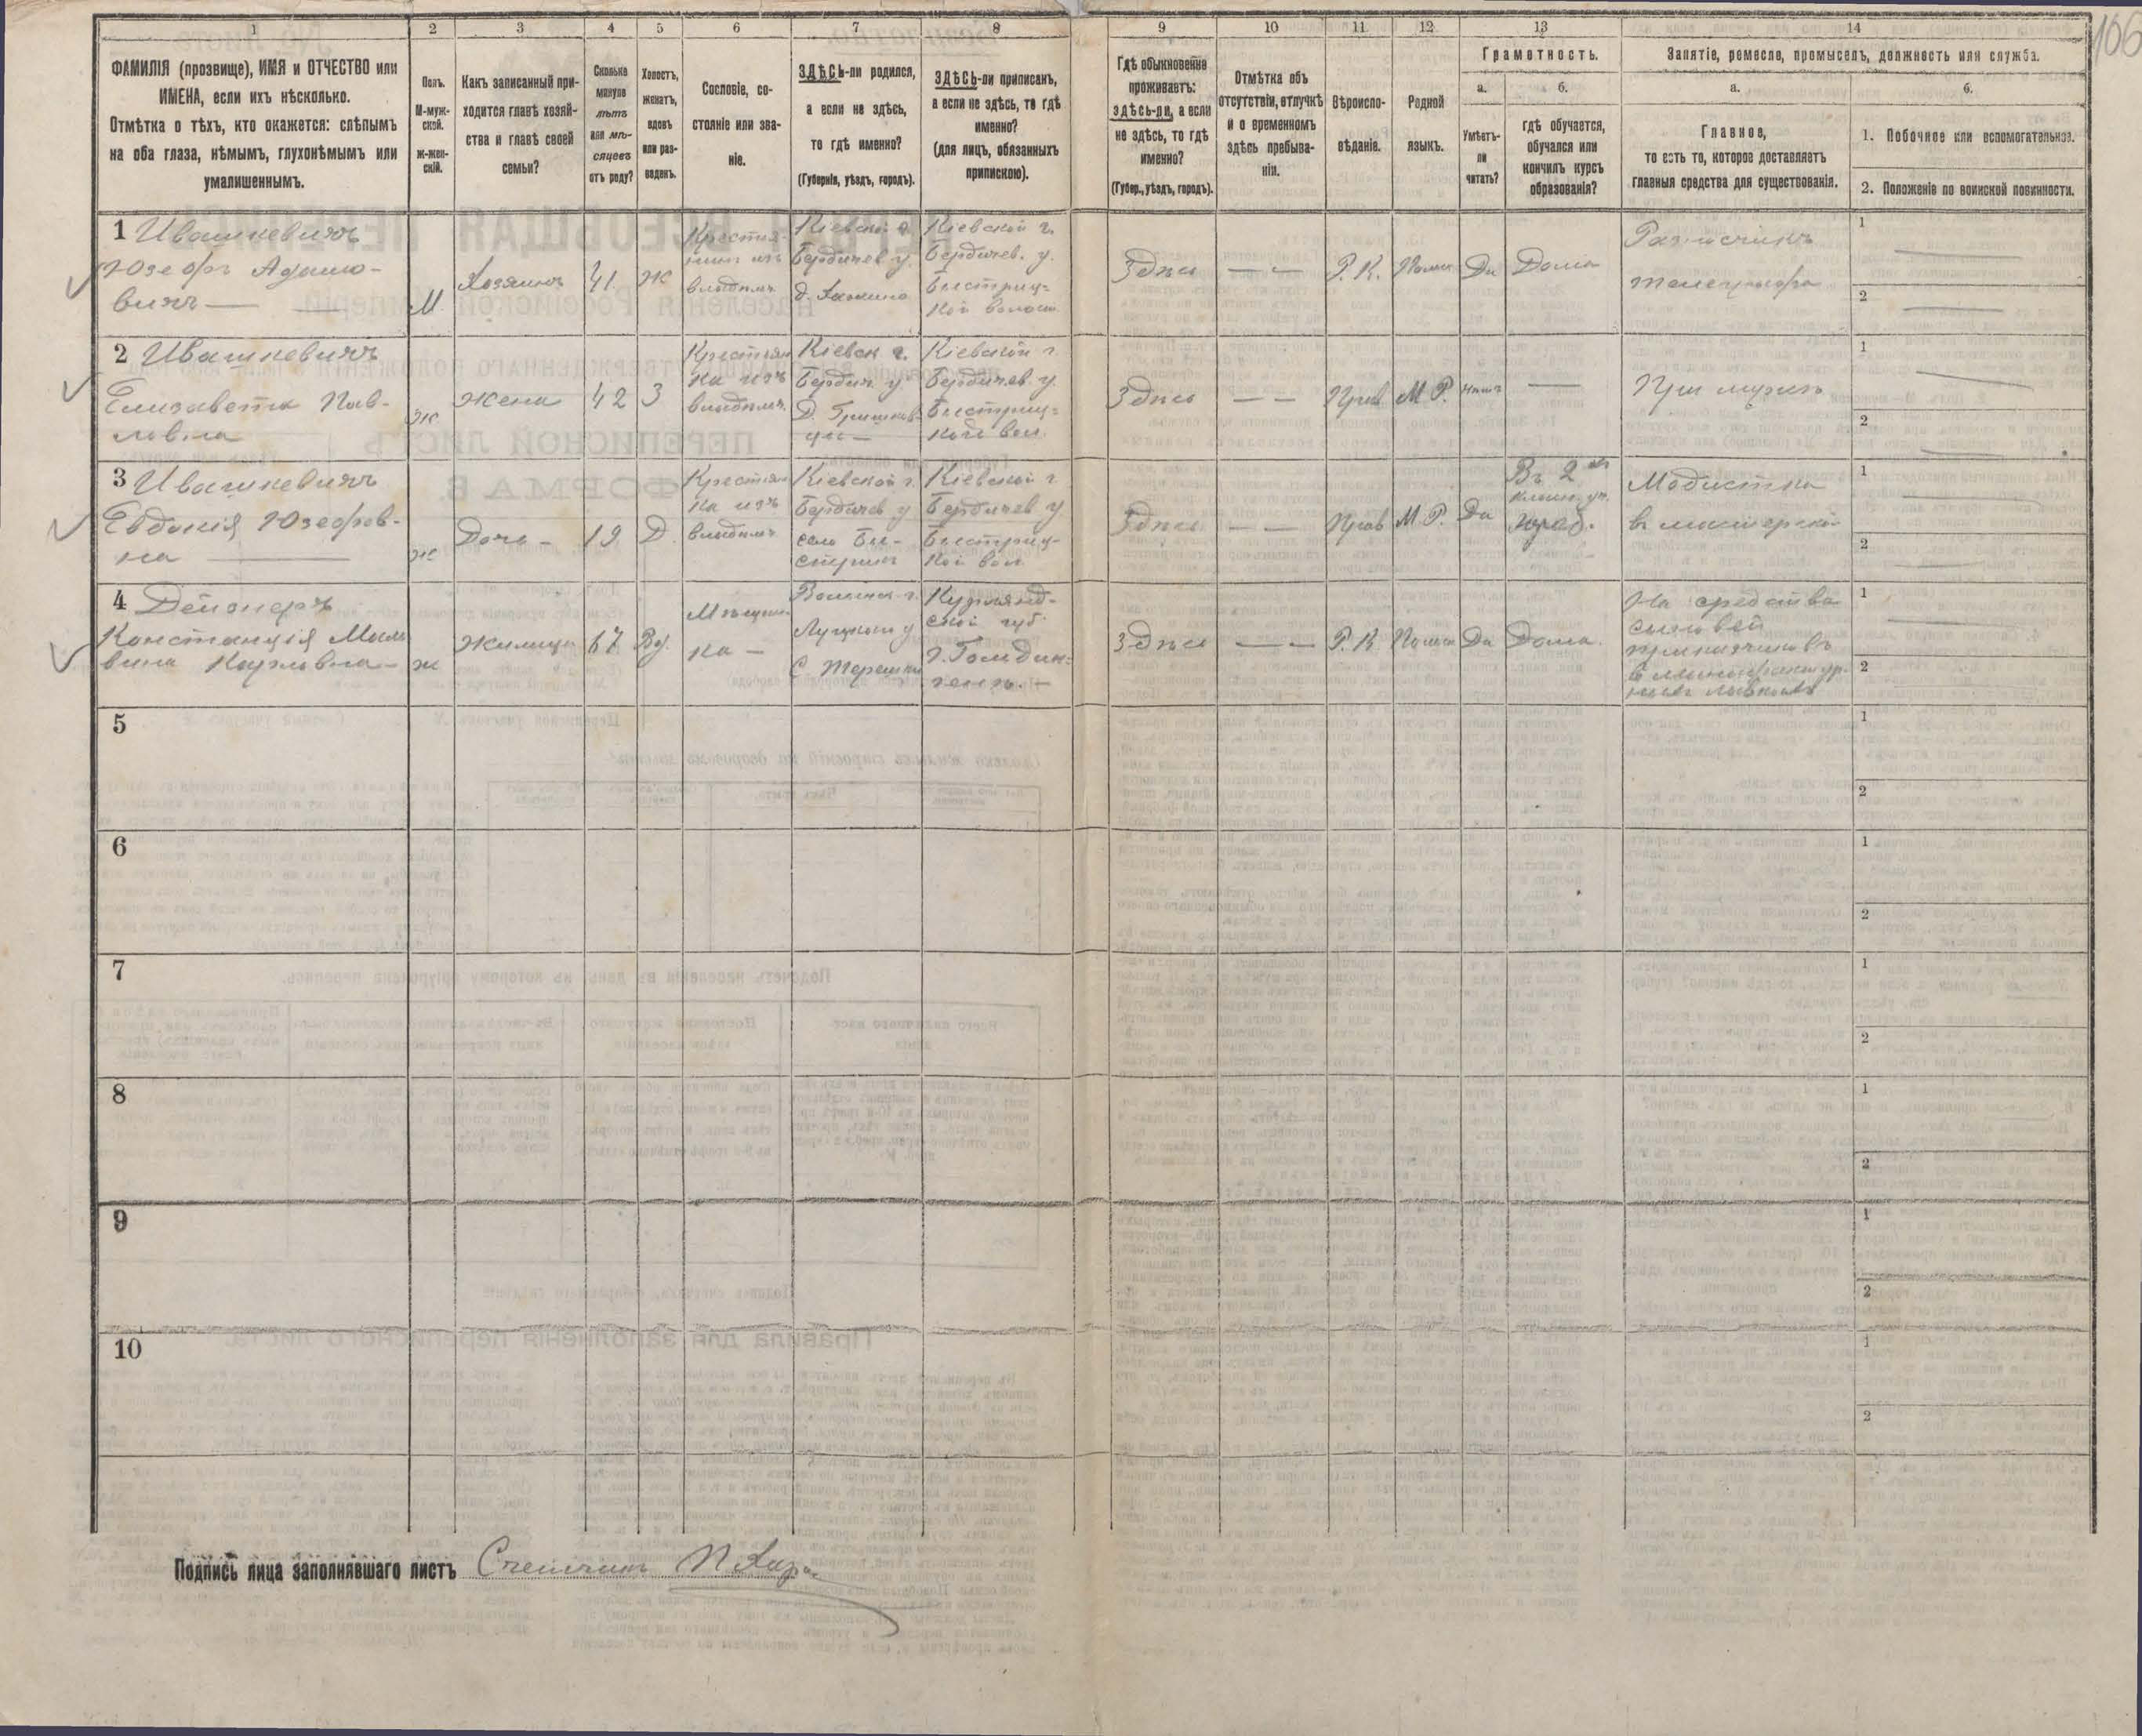 106
1
2
3
4
5
6
7
8
9
10
11
12
13
14
ФАМИЛІЯ (прозвище), ИМЯ и ОТЧЕСТВО или
ИМЕНА, если ихъ нѣсколько.
Отмѣтка о тѣхъ, кто окажется: слѣпымъ
на оба глаза, нѣмымъ, глухонѣмымъ или
умалишеннымъ.
Полъ.
М-муж-
ской.
ж-жен-
скій.
Какъ записанный при-
ходится главѣ хозяй-
ства и главѣ своей
семьи?
Сколько
минуло
лѣтъ
или мѣ-
сяцевъ
отъ роду?
Холостъ,
женатъ,
вдовъ
или раз-
веденъ.
Сословіе, со-
стояніе или зва-
ніе.
ЗДѢСЬ-ли родился,
а если не здѣсь,
то гдѣ именно?
(Губернія, уѣздъ, городъ).
ЗДѢСЬ-ли приписанъ,
а если не здѣсь, то гдѣ
именно?
(для лицъ, обязанныхъ
припискою).
Гдѣ обыкновенно
проживаетъ:
здѣсь-ли, а если
не здѣсь, то гдѣ
именно?
(Губер., уѣздъ, городъ).
Отмѣтка объ
отсутствіи, отлучкѣ
и о временномъ
здѣсь пребыва-
ніи.
Вѣроиспо-
вѣданіе.
Родной
языкъ.
Грамотность.
а.
Умѣетъ-
ли
читать?
б.
гдѣ обучается,
обучался или
кончилъ курсъ
образованія?
Занятіе, ремесло, промыселъ, должность или служба.
а.
Главное,
то есть то, которое доставляетъ
главныя средства для существованія.
б.
1. Побочное или вспомогательное.
2. Положеніе по воинской повинности.
1 Ивашкевичъ
Юзефъ Адамо-
вичъ —
М
Хозяинъ
41
Ж
Крестья-
нинъ изъ
владѣльч.
Кіевской г.
Бердичев у.
Кіевской г.
Бердичев. у.
Быстриц-
кой волост.
Здѣсь
— —
Р. К.
Польск
Да
Дома
Разносчикъ
телеграфа
1
2
2 Ивашкевичъ
Елизавета Пав-
ловна
Ж
Жена
42
З
Крестьян
ка изъ
владѣльч.
Кіевск г.
Бердич. у
Кіевской г
Бердичев у.
Быстриц-
кой вол.
Здѣсь
— —
Прав
М Р.
Нѣтъ
—
При мужѣ
1
2
3 Ивашкевичъ
Евдокія Юзефов-
на —
Ж
Дочь —
19
Д
Крестьян
ка изъ
владѣльч
Кіевской г.
Бердичев у
село Бы-
стрикъ
Кіевской г
Бердичев у
Быстриц-
кой вол
Здѣсь
— —
Прав
М Р.
Да
Въ 2
класн. уч.
Модистка
въ мастерской
1
2
4
Констанція
Карловна —
ж
Жилица
67
Вд.
Мѣщан-
ка —
Волынск г.
Луцкого у
Курлянд-
ской губ.
Здѣсь
— —
Р. К
Польск
Да
Дома.
На средства
сыновей
прикащиковъ
в мануфактур-
ныхъ лавкахъ
1
2
5
1
2
6
1
2
7
1
2
8
1
2
9
1
2
10
1
2
Подпись лица заполнявшаго листъ Счетчикъ